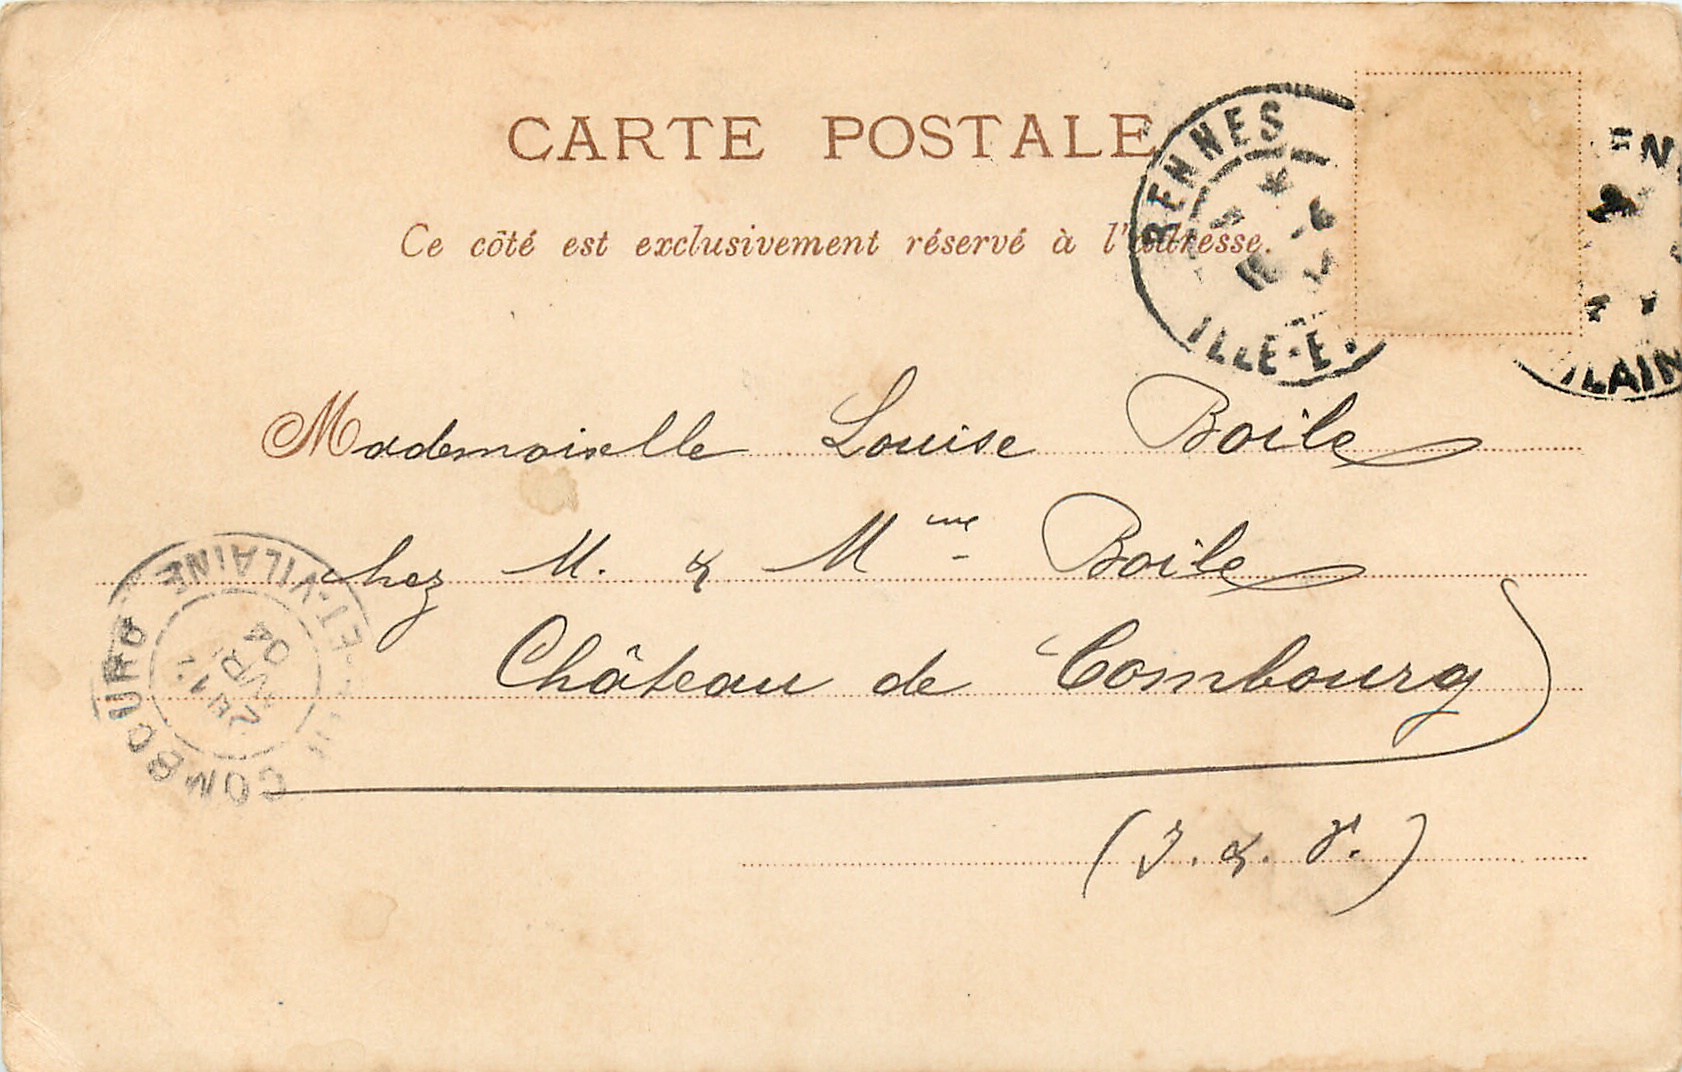 CARTE POSTALE
Ce côté est exclusivement réservé à l'adresse.
RENNES
ILLE-E.
ILAIN
Mademoiselle Louise Boile
chez M. & Mme Boile
Château de Combourg
(I. & V.)
COMBOURG
ET-VILAINE
04